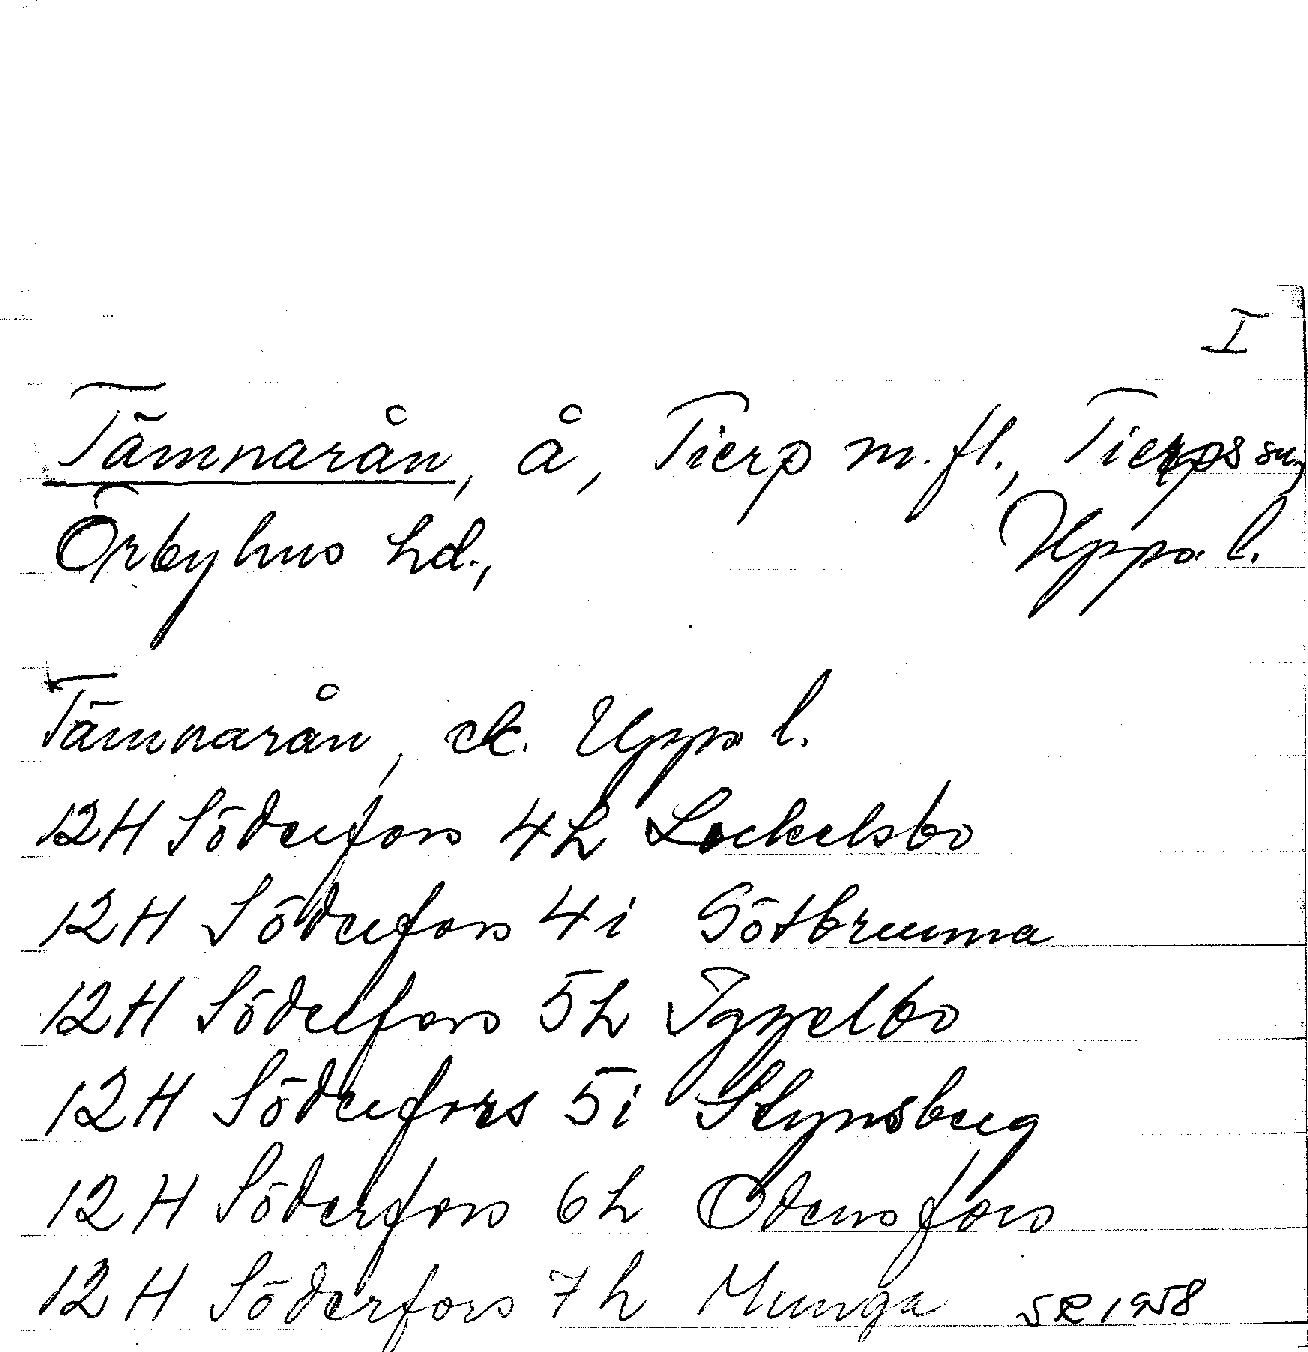 I
Tämnarån, å, Tierp m.fl., Tierps sn,
Örbyhus hd., Upps. l.
Tämnarån, ek. Upps l.
12H Söderfors 4h Lockelsbo
12H Söderfors 4i Götbrunna
12H Söderfors 5h Iggelbo
12H Söderfors 5i Strynsberg
12H Söderfors 6h Odensfors
12H Söderfors 7h Munga SR 1958